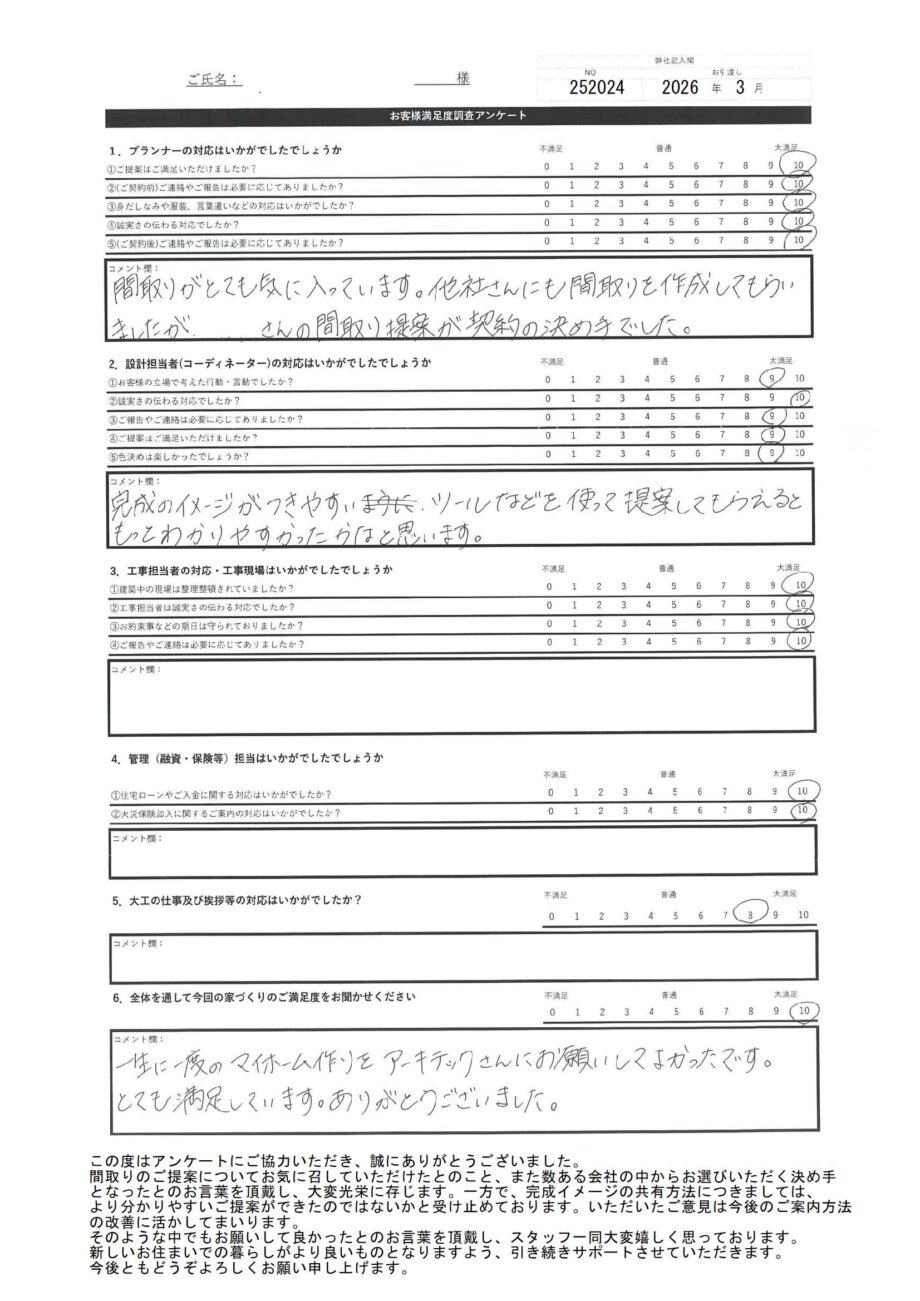 ご氏名： 様
弊社記入欄
NO お引渡し
252024 2026 年 3 月
お客様満足度調査アンケート
1．プランナーの対応はいかがでしたでしょうか 不満足 普通 大満足
①ご提案はご満足いただけましたか？ 0 1 2 3 4 5 6 7 8 9 10
②(ご契約前)ご連絡やご報告は必要に応じてありましたか？ 0 1 2 3 4 5 6 7 8 9 10
③身だしなみや服装、言葉遣いなどの対応はいかがでしたか？ 0 1 2 3 4 5 6 7 8 9 10
④誠実さの伝わる対応でしたか？ 0 1 2 3 4 5 6 7 8 9 10
⑤(ご契約後)ご連絡やご報告は必要に応じてありましたか？ 0 1 2 3 4 5 6 7 8 9 10
コメント欄：
間取りがとても気に入っています。他社さんにも間取りを作成してもらい
ましたが、 さんの間取り提案が契約の決め手でした。
2．設計担当者(コーディネーター)の対応はいかがでしたでしょうか 不満足 普通 大満足
①お客様の立場で考えた行動・言動でしたか？ 0 1 2 3 4 5 6 7 8 9 10
②誠実さの伝わる対応でしたか？ 0 1 2 3 4 5 6 7 8 9 10
③ご報告やご連絡は必要に応じてありましたか？ 0 1 2 3 4 5 6 7 8 9 10
④ご提案はご満足いただけましたか？ 0 1 2 3 4 5 6 7 8 9 10
⑤色決めは楽しかったでしょうか？ 0 1 2 3 4 5 6 7 8 9 10
コメント欄：
完成のイメージがつきやすい ツールなどを使って提案してもらえると
もっとわかりやすかったかなと思います。
3．工事担当者の対応・工事現場はいかがでしたでしょうか 不満足 普通 大満足
①建築中の現場は整理整頓されていましたか？ 0 1 2 3 4 5 6 7 8 9 10
②工事担当者は誠実さの伝わる対応でしたか？ 0 1 2 3 4 5 6 7 8 9 10
③お約束事などの期日は守られておりましたか？ 0 1 2 3 4 5 6 7 8 9 10
④ご報告やご連絡は必要に応じてありましたか？ 0 1 2 3 4 5 6 7 8 9 10
コメント欄：
4．管理（融資・保険等）担当はいかがでしたでしょうか
不満足 普通 大満足
①住宅ローンやご入金に関する対応はいかがでしたか？ 0 1 2 3 4 5 6 7 8 9 10
②火災保険加入に関するご案内の対応はいかがでしたか？ 0 1 2 3 4 5 6 7 8 9 10
コメント欄：
5．大工の仕事及び挨拶等の対応はいかがでしたか？ 不満足 普通 大満足
0 1 2 3 4 5 6 7 8 9 10
コメント欄：
6．全体を通して今回の家づくりのご満足度をお聞かせください 不満足 普通 大満足
0 1 2 3 4 5 6 7 8 9 10
コメント欄：
一生に一度のマイホーム作りをアーキテックさんにお願いしてよかったです。
とても満足しています。ありがとうございました。
この度はアンケートにご協力いただき、誠にありがとうございました。
間取りのご提案についてお気に召していただけたとのこと、また数ある会社の中からお選びいただく決め手
となったとのお言葉を頂戴し、大変光栄に存じます。一方で、完成イメージの共有方法につきましては、
より分かりやすいご提案ができたのではないかと受け止めております。いただいたご意見は今後のご案内方法
の改善に活かしてまいります。
そのような中でもお願いして良かったとのお言葉を頂戴し、スタッフ一同大変嬉しく思っております。
新しいお住まいでの暮らしがより良いものとなりますよう、引き続きサポートさせていただきます。
今後ともどうぞよろしくお願い申し上げます。